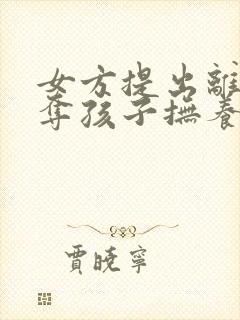 女方提出離
奪孩子撫養
賈曉寧